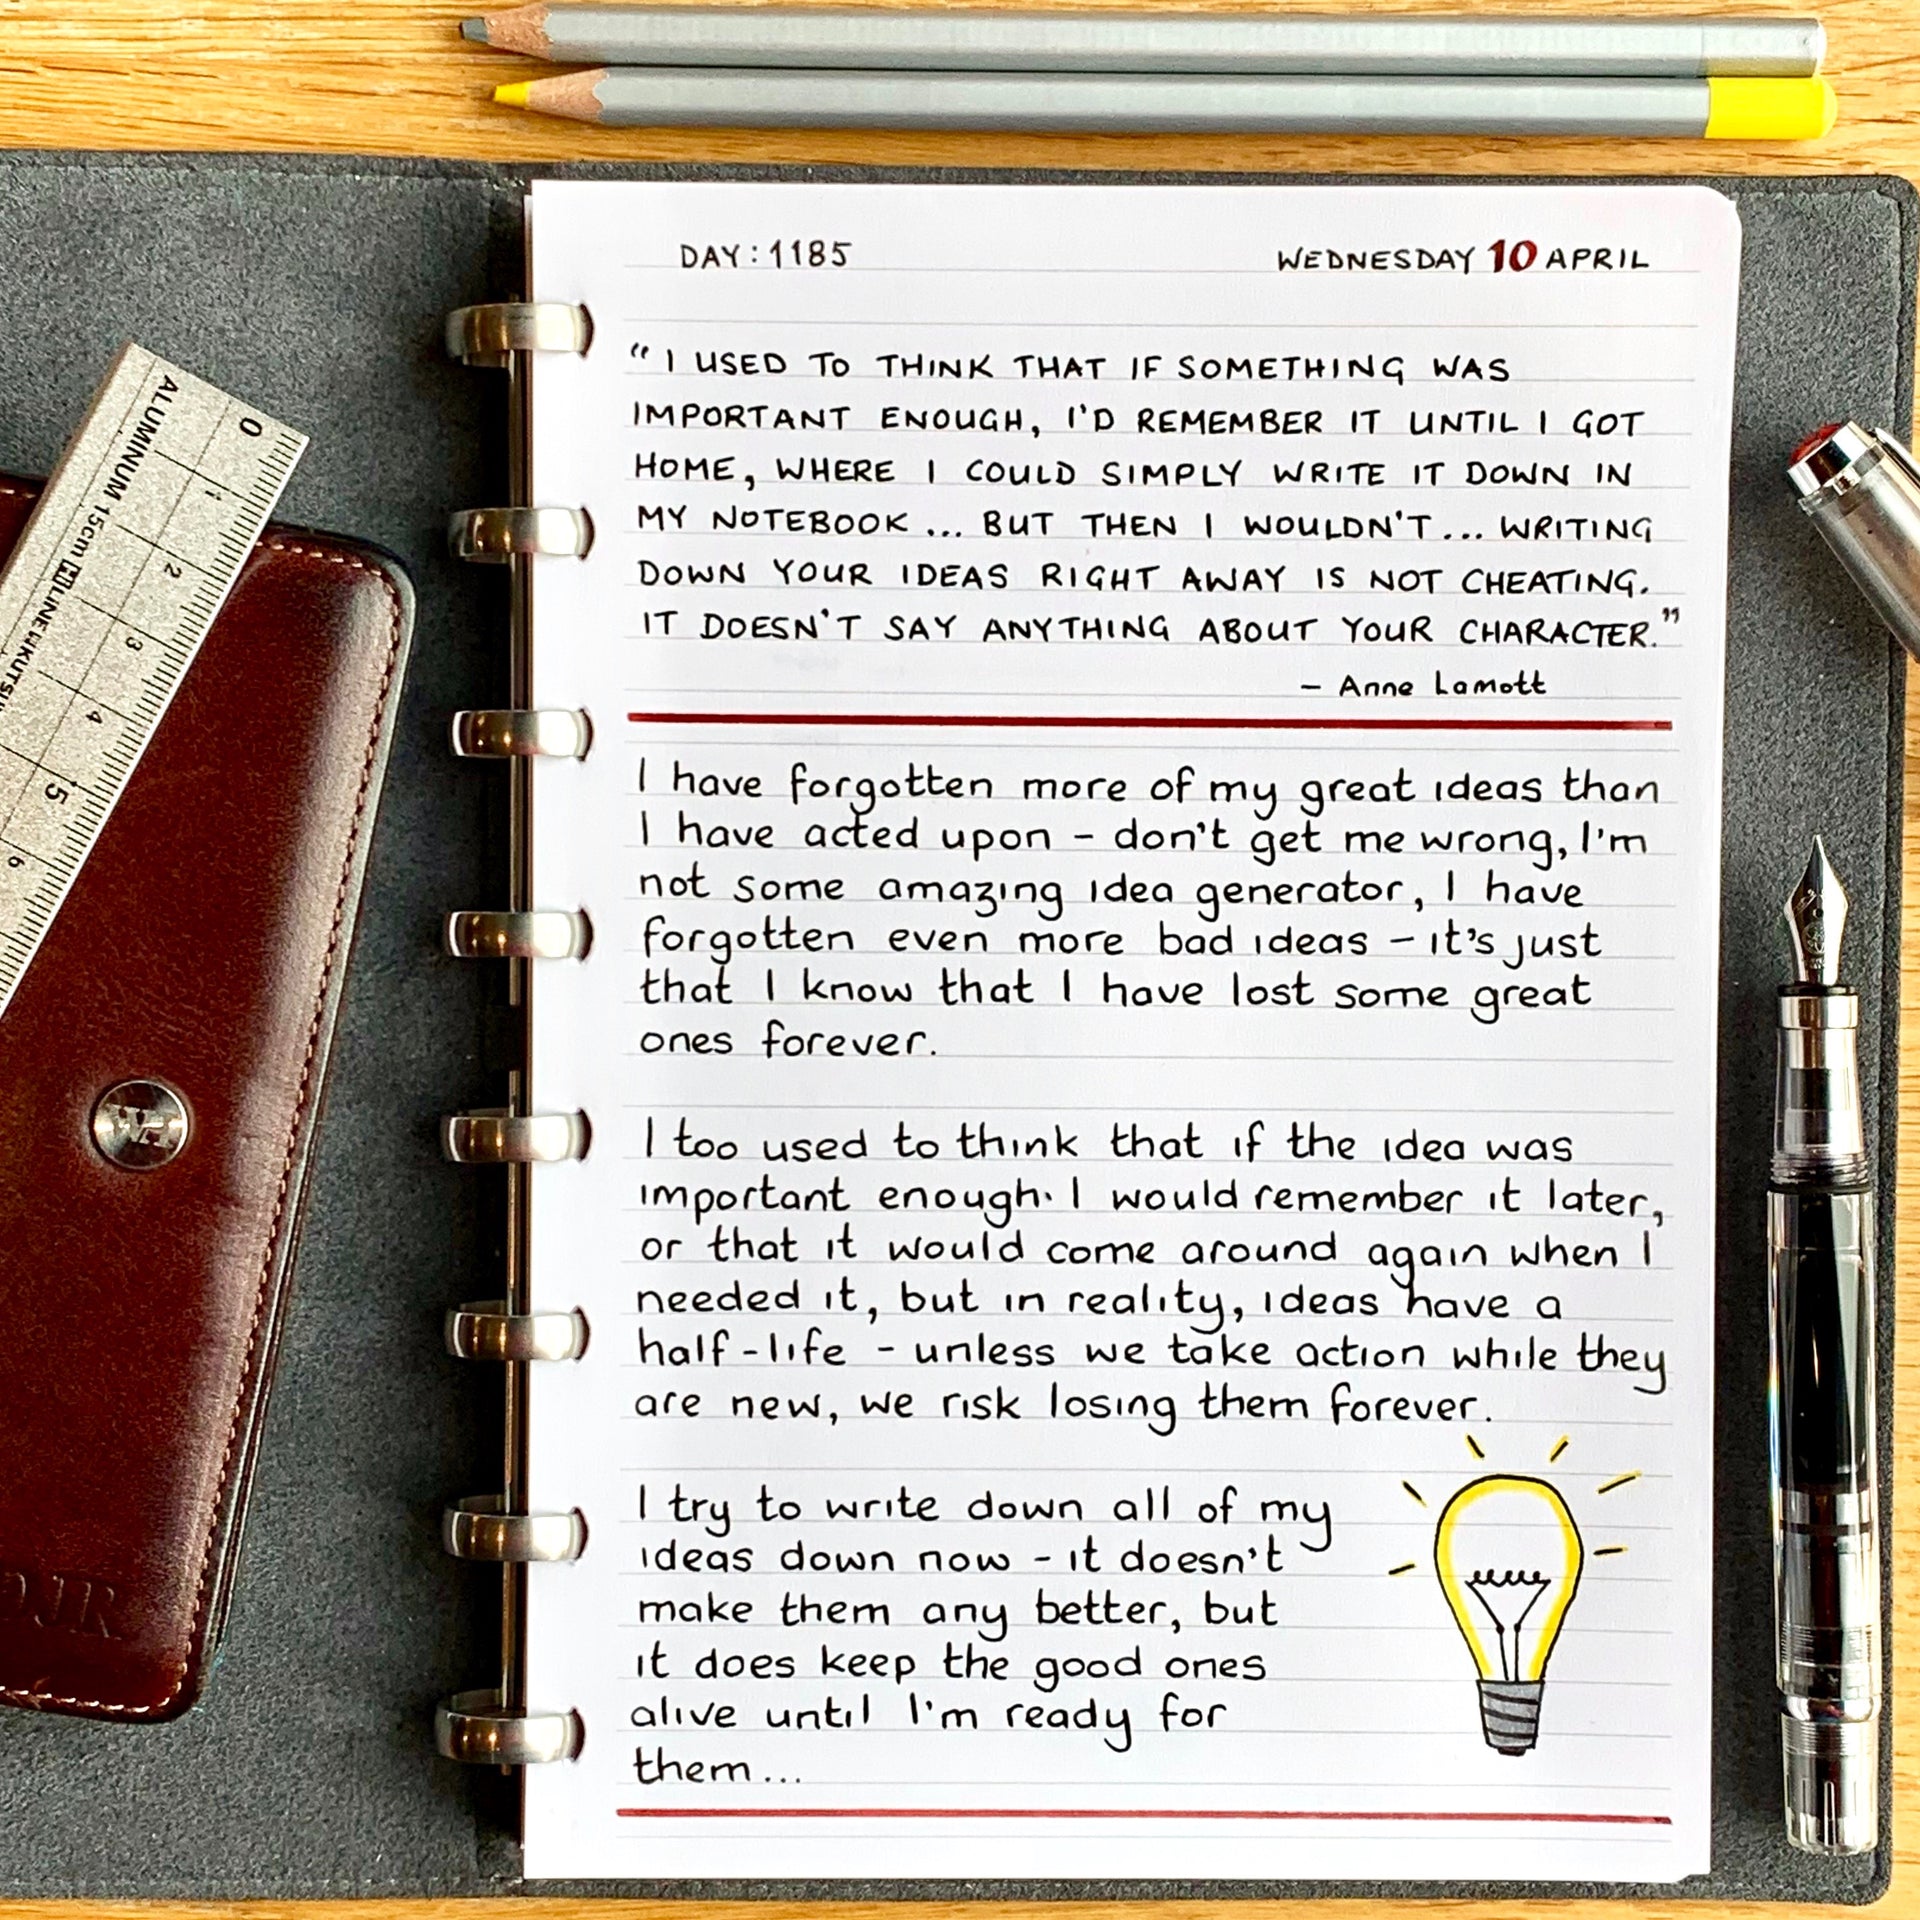 DAY: 1185
WEDNESDAY 10 APRIL
“I USED TO THINK THAT IF SOMETHING WAS
IMPORTANT ENOUGH, I'D REMEMBER IT UNTIL I GOT
HOME, WHERE I COULD SIMPLY WRITE IT DOWN IN
MY NOTEBOOK... BUT THEN I WOULDN'T... WRITING
DOWN YOUR IDEAS RIGHT AWAY IS NOT CHEATING.
IT DOESN'T SAY ANYTHING ABOUT YOUR CHARACTER.”
– Anne Lamott
I have forgotten more of my great ideas than
I have acted upon – don't get me wrong, I'm
not some amazing idea generator, I have
forgotten even more bad ideas – it's just
that I know that I have lost some great
ones forever.
I too used to think that if the idea was
important enough. I would remember it later,
or that it would come around again when I
needed it, but in reality, ideas have a
half-life - unless we take action while they
are new, we risk losing them forever.
I try to write down all of my
ideas down now - it doesn't
make them any better, but
it does keep the good ones
alive until I'm ready for
them...
ALUMINUM 15cm
0
1
2
3
4
5
6
DJR